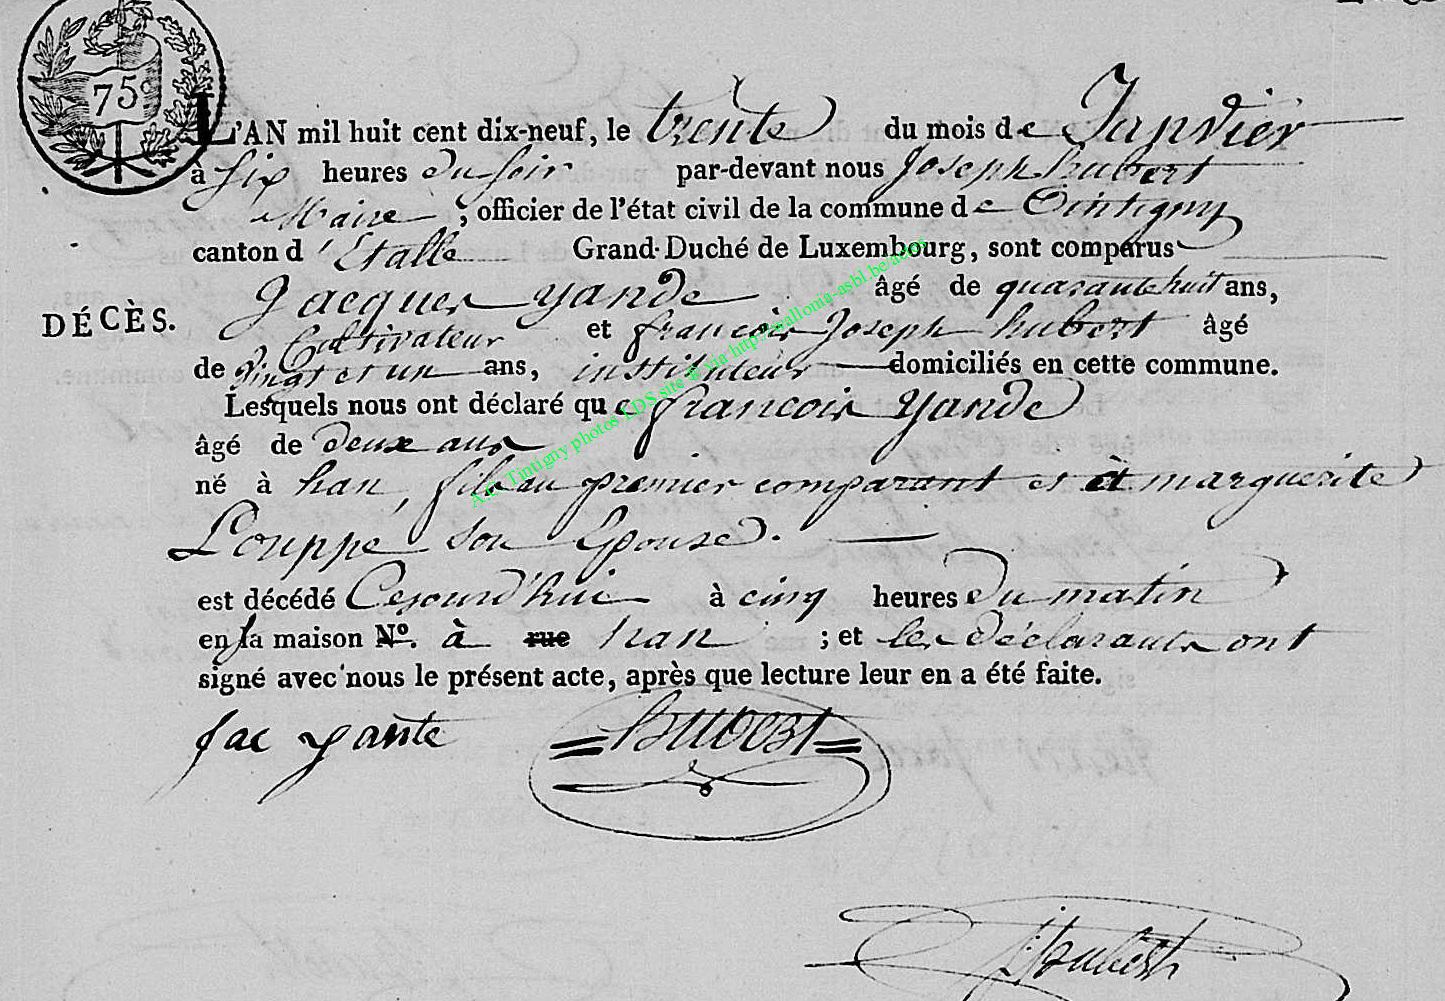 75c
L'AN mil huit cent dix-neuf, le trente du mois de Janvier
à six heures du soir par-devant nous Joseph hubert
Maire, officier de l'état civil de la commune de Tintigny
canton d'Etalle Grand-Duché de Luxembourg, sont comparus
Jacques yande âgé de quarante huit ans,
DÉCÈS.
Cultivateur et françois Joseph hubert âgé
de vingt et un ans, instituteur domiciliés en cette commune.
Lesquels nous ont déclaré que françois yande
âgé de deux ans
né à han, fils au premier comparant et à marguerite
Louppe son Epouse.
est décédé Cejourd'hui à cinq heures du matin
en sa maison N°. à rue han ; et les déclarants ont
signé avec nous le présent acte, après que lecture leur en a été faite.
Jac yante Hubert
J hubert
A.C. Tintigny photos LDS site & via http://wallonia-asbl.be/actes